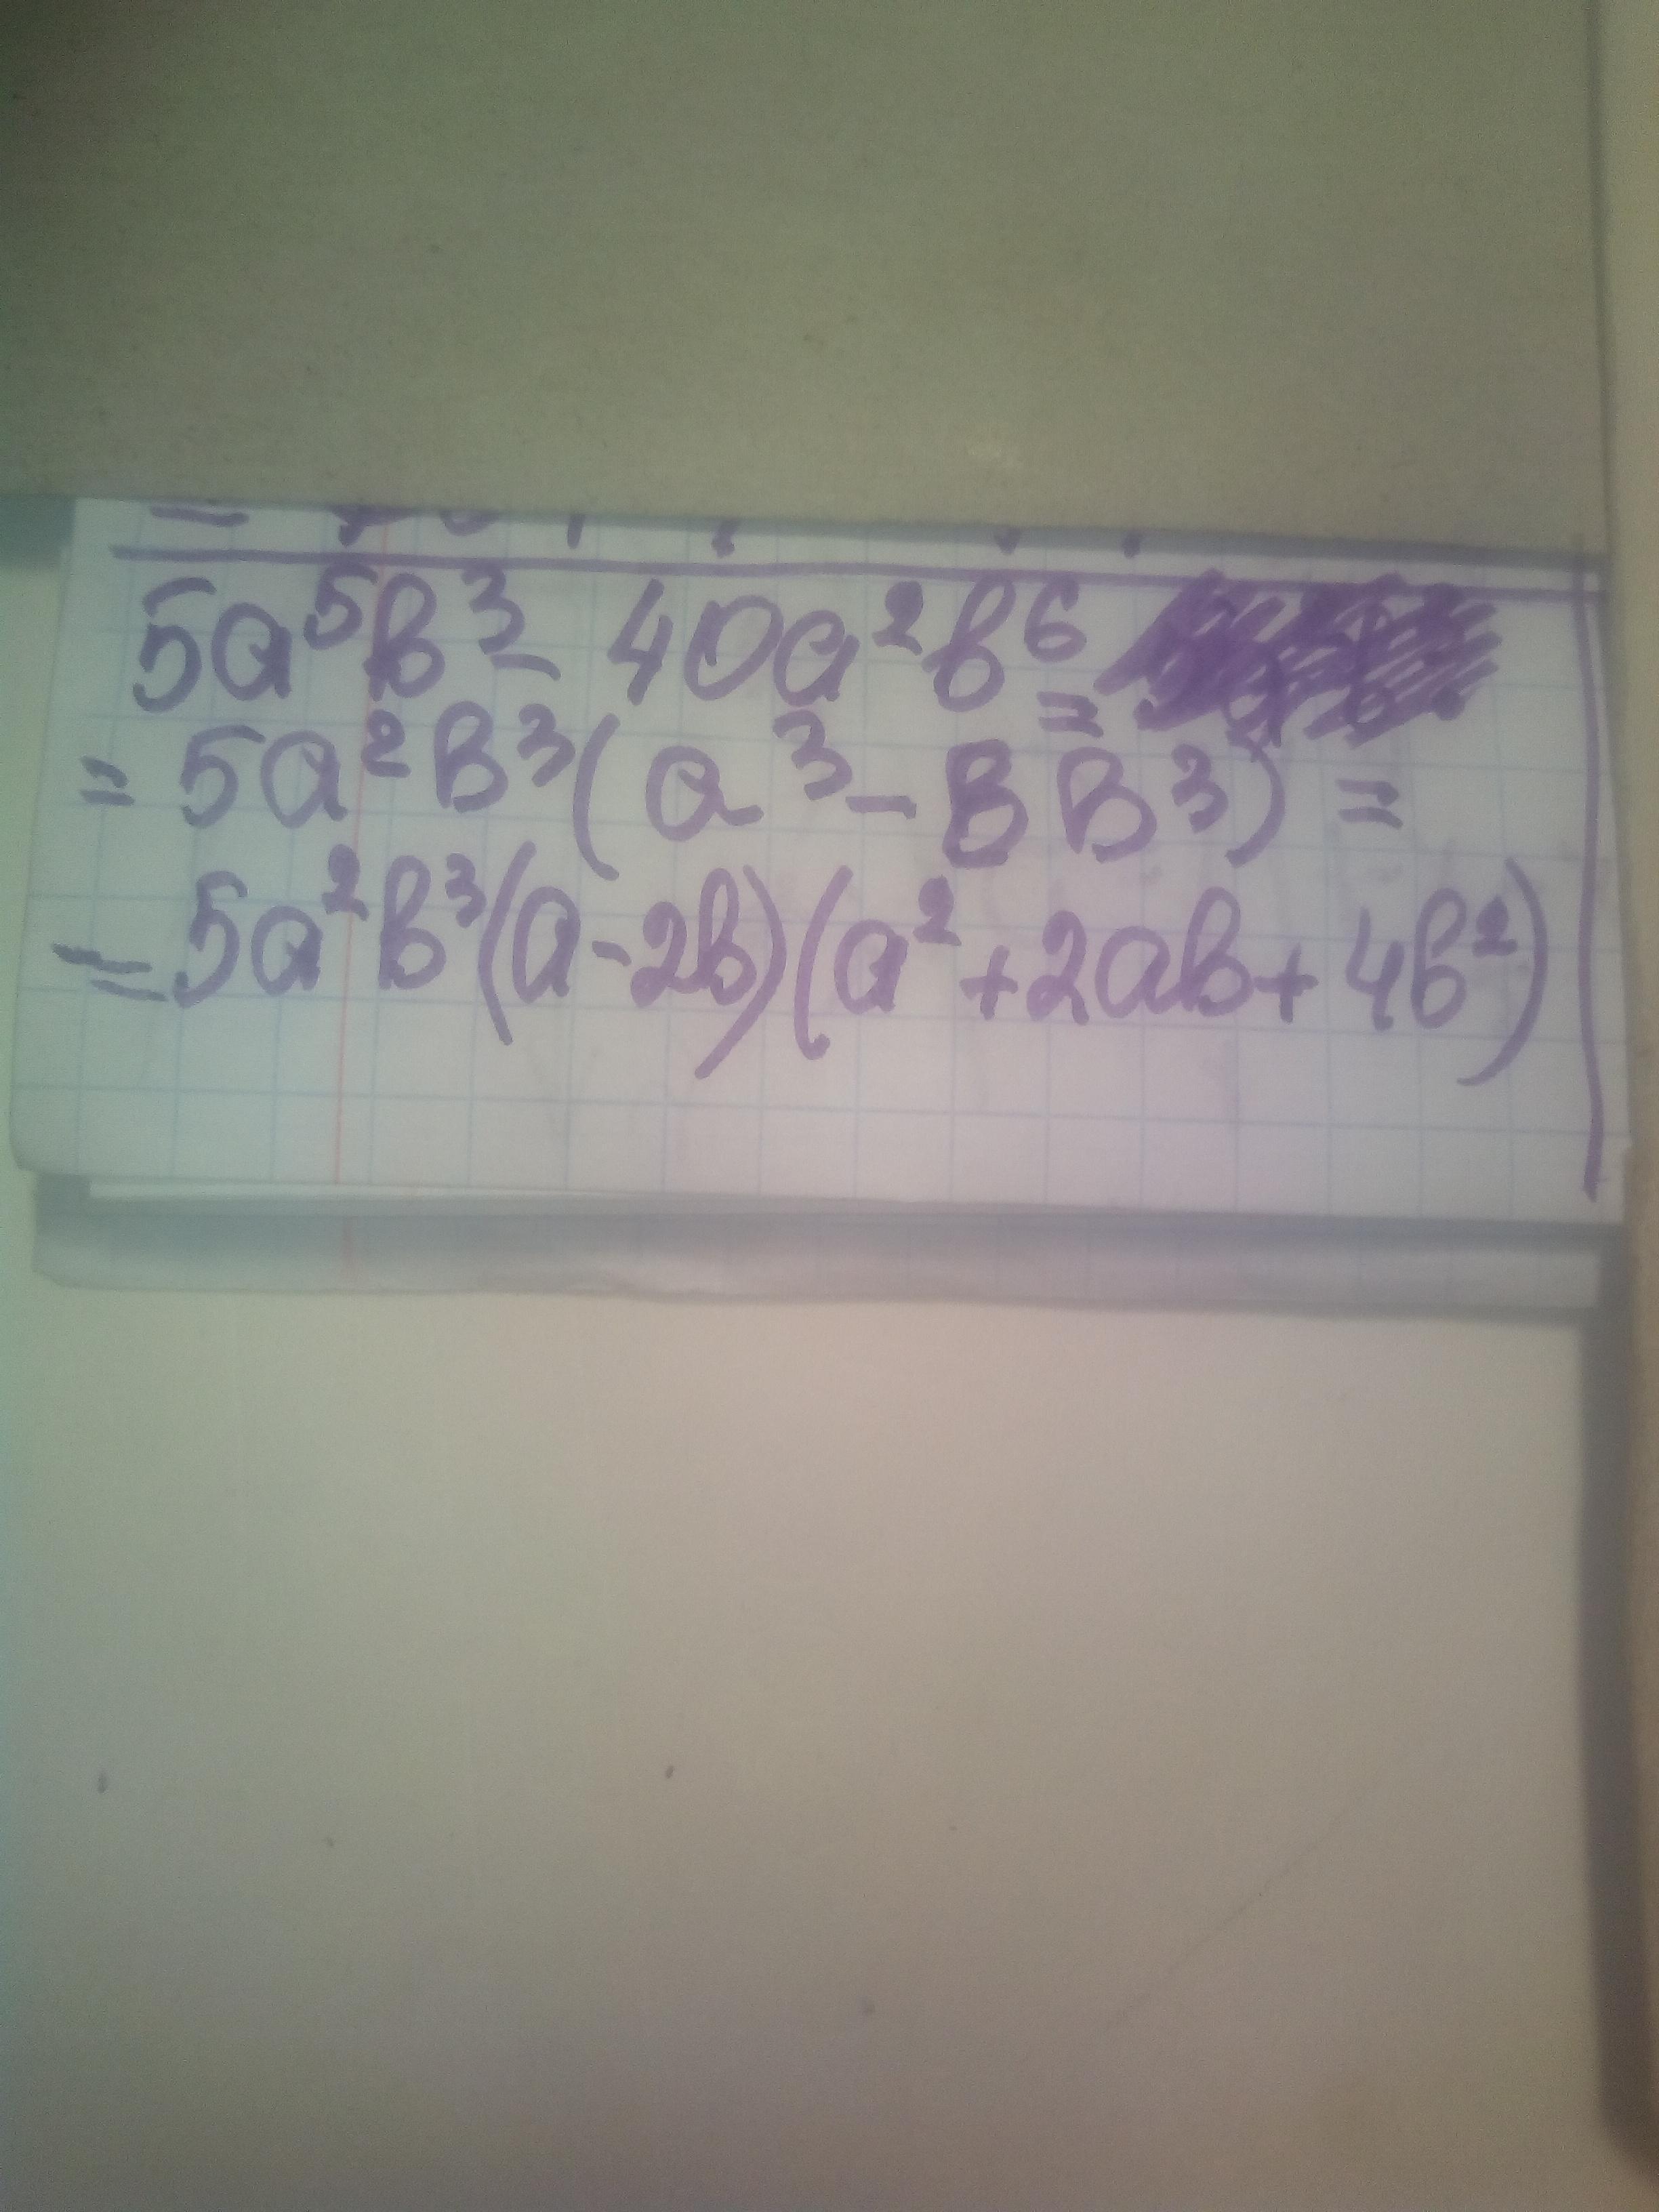 5a⁵b³ - 40a²b⁶ =
= 5a²b³(a³ - 8b³) =
= 5a²b³(a - 2b)(a² + 2ab + 4b²)